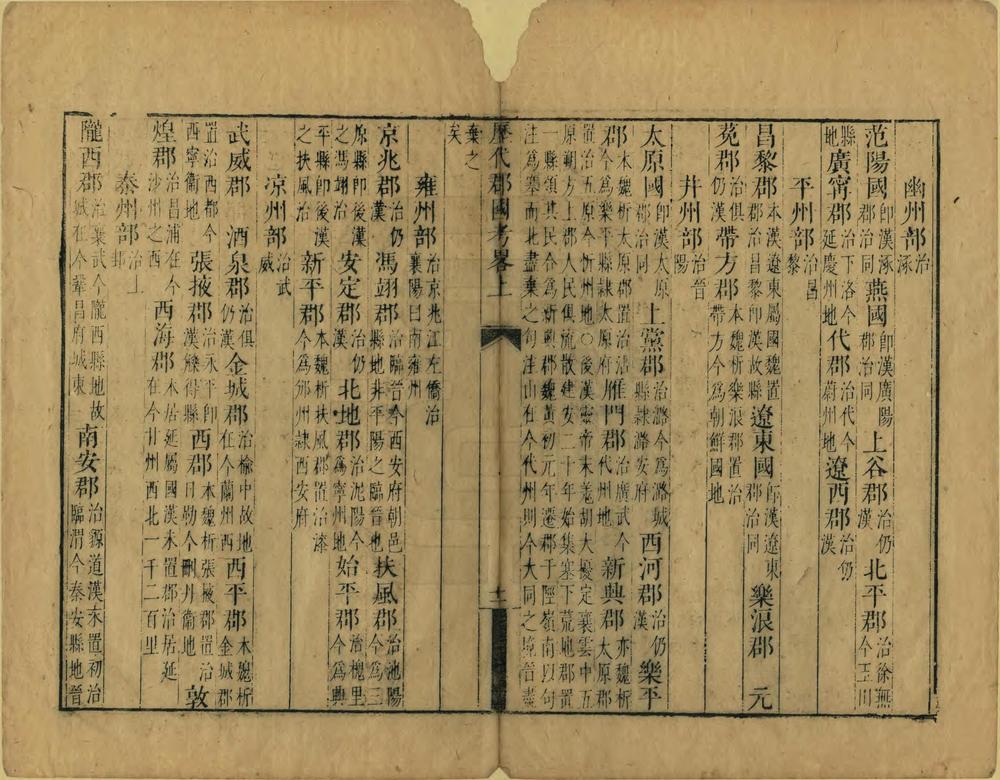 幽州部治涿
范陽國即漢涿郡治同燕國即漢廣陽郡治同上谷郡治仍漢北平郡治徐無今玉川
縣地廣甯郡治下洛今延慶州地代郡治代今蔚州地遼西郡治仍漢
平州部治昌黎
昌黎郡本漢遼東屬國魏置郡治昌黎即漢故縣遼東國即漢遼東郡治同樂浪郡 元
菟郡治俱仍漢帶方郡本魏析樂浪郡置治帶方今爲朝鮮國地
并州部治晉陽
太原國即漢太原郡治同上黨郡治潞今爲潞城縣隷潞安府西河郡治仍漢樂平
郡本魏析太原郡置治沾今爲樂平縣隷太原府雁門郡治廣武今代州地新興郡亦魏析太原郡
置治五原今忻州地○後漢靈帝末羗胡大擾定襄雲中五原朔方上郡人民俱流散建安二十年始集塞下荒地郡置
一縣領其民合爲新興郡魏黃初元年遷郡于陘嶺南以句注爲塞而北盡棄之句注山在今代州則今大同之境晉盡
棄之矣
歷代郡國考畧上
十一
雍州部治京兆江左僑治襄陽曰南雍州
京兆郡治仍漢馮翊郡治臨晉今西安府朝邑縣地非平陽之臨晉也扶風郡治池陽今爲三
原縣即後漢之馮翊治安定郡治仍漢北地郡治泥陽今爲寧州地始平郡治槐里今爲興
平縣即後漢之扶風治新平郡本魏析扶風郡置治漆今爲邠州隷西安府
凉州部治武威
武威郡 酒泉郡治俱仍漢金城郡治榆中故地在今蘭州西西平郡本魏析金城郡
置治西都今西寧衛地張掖郡治永平即漢觻得縣西郡本魏析張掖郡置治日勒今刪丹衛地敦
煌郡治昌浦在今沙州之西西海郡本居延屬國漢末置郡治居延在今甘州西北一千二百里
秦州部治上邽
隴西郡治襄武今隴西縣地故城在今鞏昌府城東南安郡治䝠道漢末置初治臨渭今秦安縣地晉